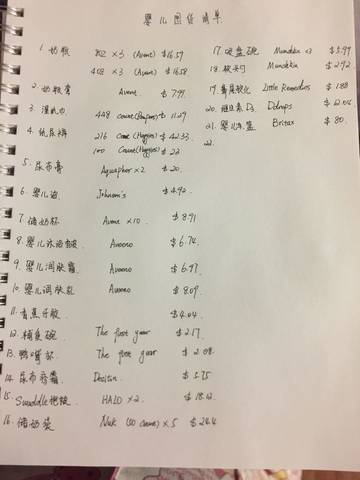 婴儿囤货清单
1. 奶瓶 802 × 3 (Avent) $16.59
403 × 3 (Avent) $16.58
2. 奶瓶 Avent $7.99
3. 湿纸巾 448 count (Pampers) $11.29
4. 纸尿裤 216 Count (Huggies) $42.33
100 Count (Huggies) $22
5. 尿布膏 Aquaphor × 2 $20.
6. 婴儿油 Johnson's $4.92
7. 储奶杯 Avent × 10 $8.91
8. 婴儿沐浴 Aveeno $6.74.
9. 婴儿润肤霜 Aveeno $6.97
10. 婴儿润肤乳 Aveeno $8.09
11. 香蕉牙胶 $4.04
12. 碗 The first year $2.17
13. 鸭嘴杯 The first year $2.08
14. 尿布膏 Desitin $5.75
15. Swaddle HALO × 2 $18.12
16. 储奶袋 Nuk (50 count) × 5 $24.4
17. 吸盘碗 Munchkin × 3 $5.99
18. Munchkin $2.92
19. Little Remedies $1.88
20. 维生素 D3 Ddrops $12.02
21. 婴儿 Britax $80
22.